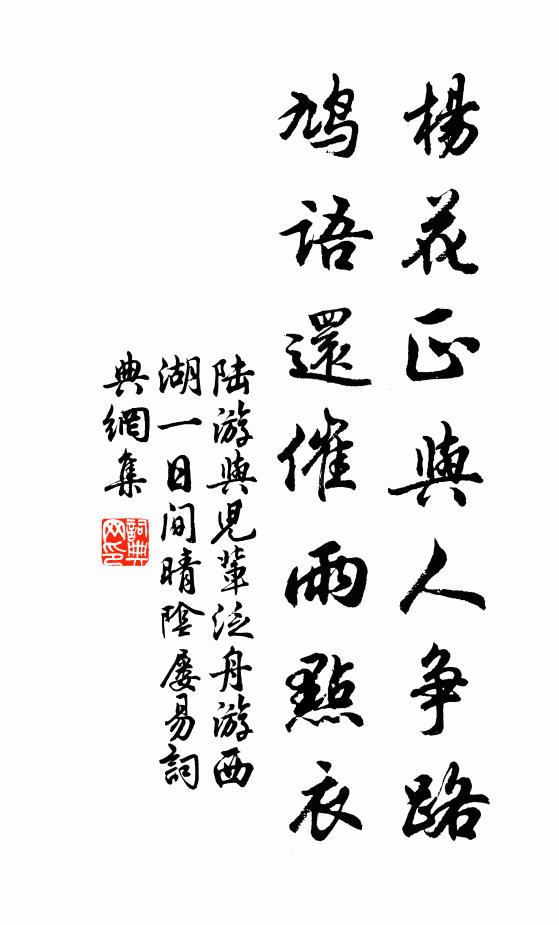 楊花正與人争路
鳩語還催雨點衣
陆游與児輩泛舟游西
湖一日间晴陰屡易詞
典網集
詞典网印